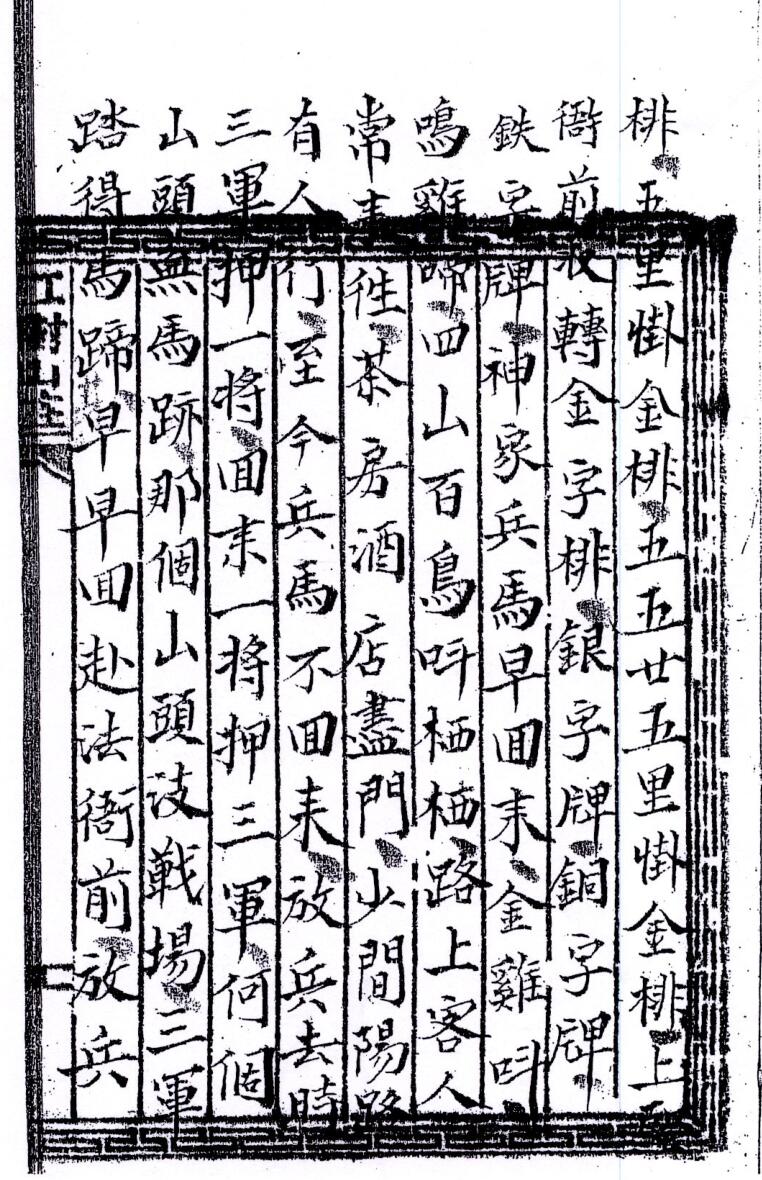 排五里掛金排五五廿五里掛金排上
衙前收轉金字排銀字牌銅字牌
鉄字牌神家兵馬早回来金雞呌
鳴雞啼四山百鳥呌栖栖路上客人
常来徃茶房酒店盡門少間陽路
有人行至今兵馬不回来放兵去時
三軍押一将回来一将押三軍何個
山頭無馬跡那個山頭没戦場三軍
踏得馬蹄早早回赴法衙前放兵